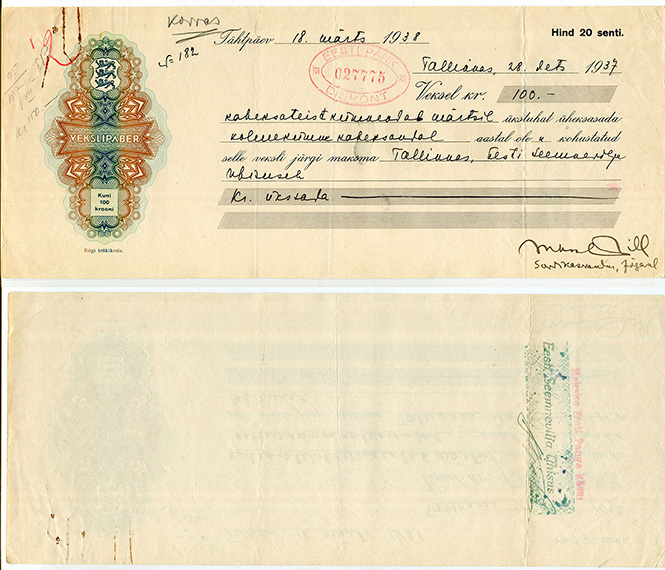 Korras
Tähtpäev 18. märts 1938
Hind 20 senti.
№ 182
EESTI PANK
027775
DISKONT
Tallinnas, 28. dets 1937
Veksel kr. 100.-
kaheksateistkümnendal märtsil ükstuhat üheksasada
kolmekümne kaheksandal aastal ole n kohustatud
selle veksli järgi maksma Tallinnas, Eesti Seemnevilja
Ühisusele
kr. ükssada
VEKSLIPABER
Kuni
100
krooni
Riigi trükikoda.
Eesti Seemnevilja Ühisus
Makske Eesti Panga